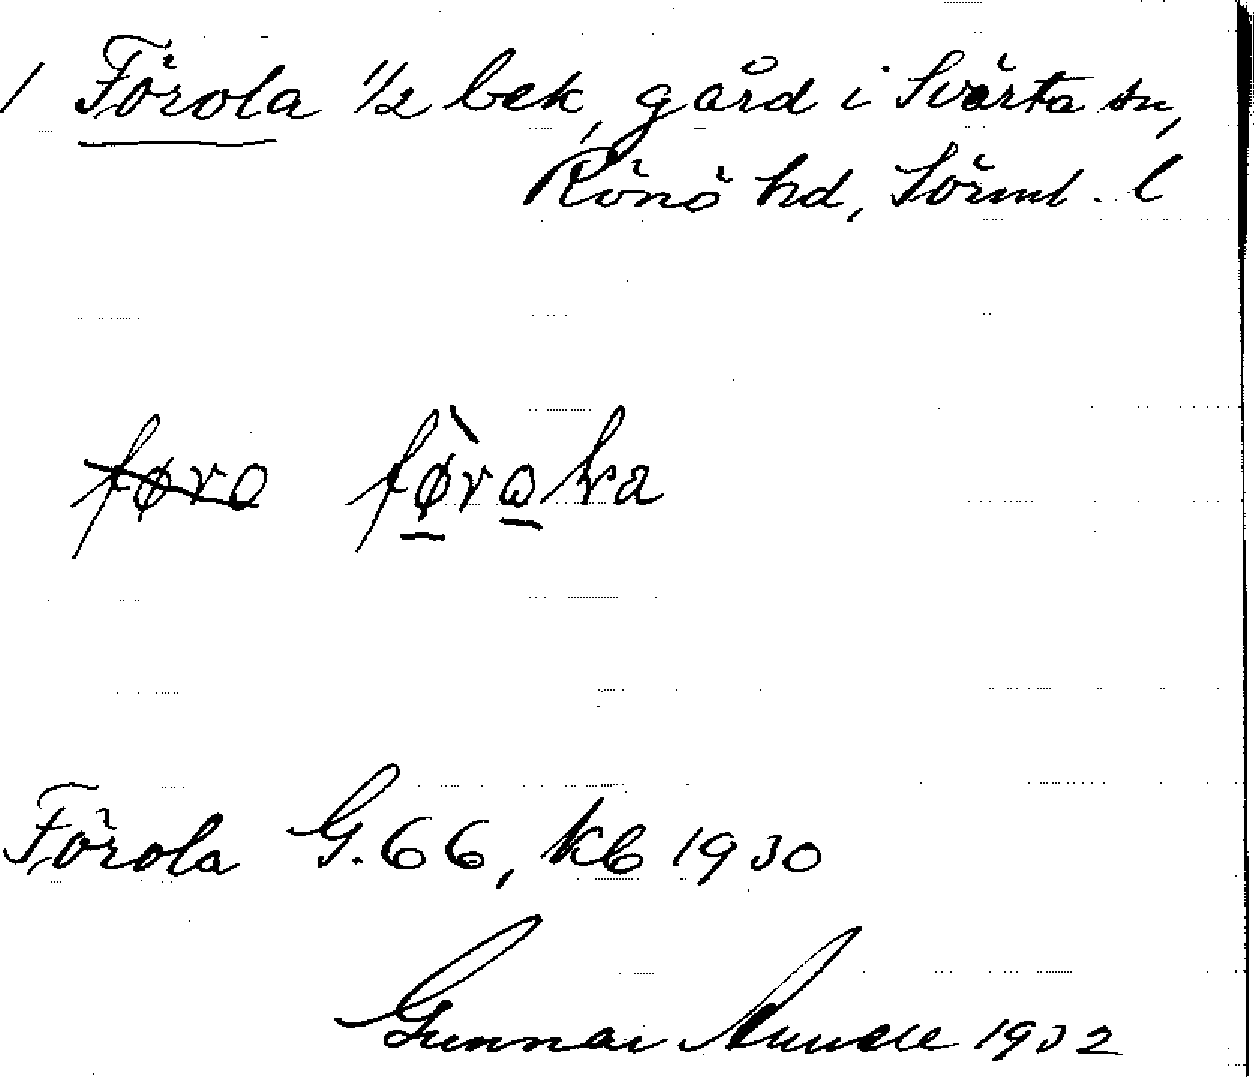 1 Förola 1/2 bek, gård i Svärta sn,
Rönö hd, Sörml. l
føro
Förola G.66, kb 1930
Gunnar 1932